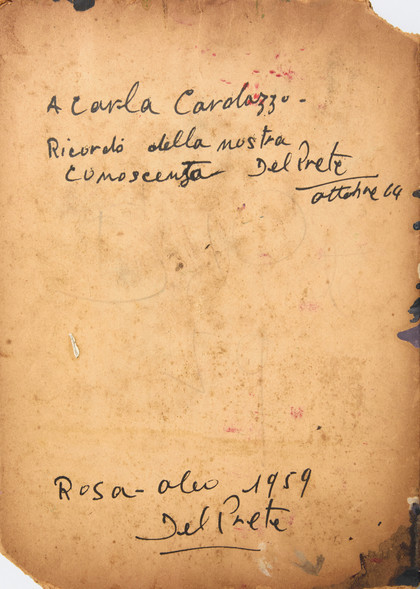 A Carla Cardazzo -
Ricordo della nostra
conoscenza Del Prete
ottobre 64
Rosa - oleo 1959
Del Prete